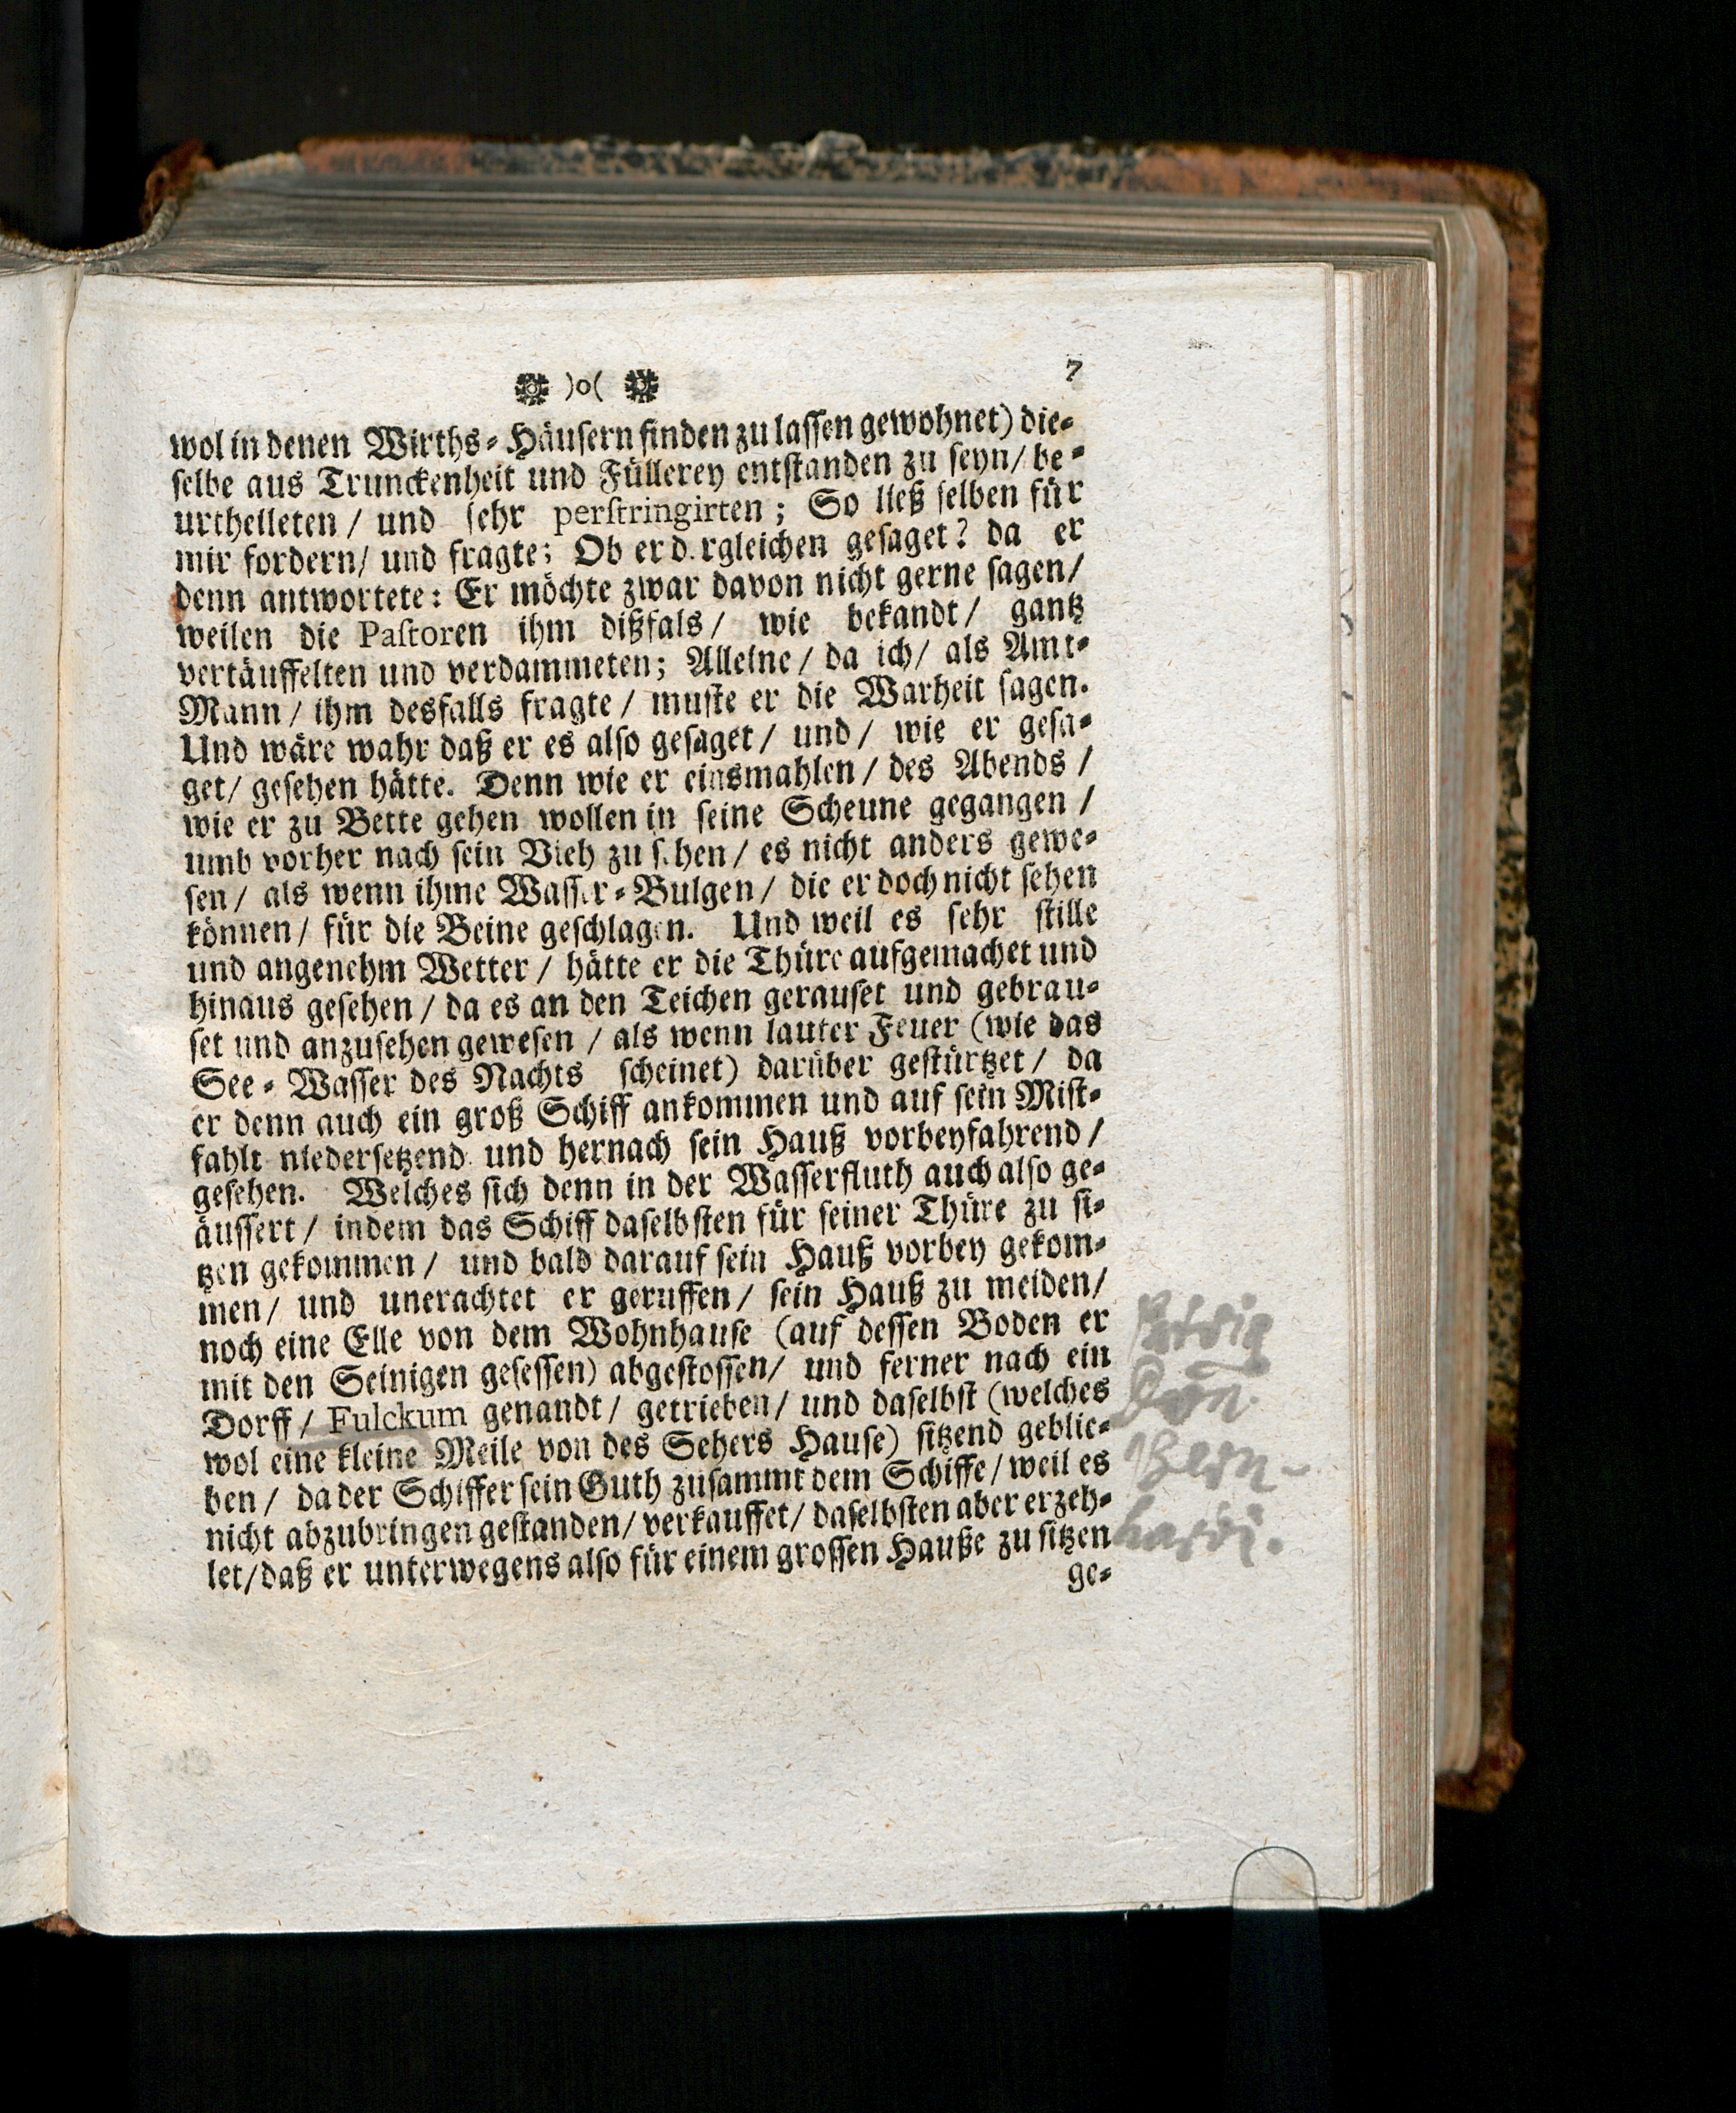 )o( 7
wol in denen Wirths-Häusern finden zu lassen gewohnet) die-
selbe aus Trunckenheit und Füllerey entstanden zu seyn/ be-
urtheileten / und sehr perstringirten ; So ließ selben für
mir fordern/ und fragte; Ob er d.rgleichen gesaget? da er
denn antwortete: Er möchte zwar davon nicht gerne sagen/
weilen die Pastoren ihm dißfals/ wie bekandt/ gantz
vertäuffelten und verdammeten; Alleine/ da ich/ als Amt-
Mann/ ihm desfalls fragte/ muste er die Warheit sagen.
Und wäre wahr daß er es also gesaget/ und/ wie er gesa-
get/ gesehen hätte. Denn wie er einsmahlen/ des Abends /
wie er zu Bette gehen wollen in seine Scheune gegangen /
umb vorher nach sein Vieh zu s.hen/ es nicht anders gewe-
sen/ als wenn ihme Wasser-Bulgen/ die er doch nicht sehen
können/ für die Beine geschlagen. Und weil es sehr stille
und angenehm Wetter / hätte er die Thüre aufgemachet und
hinaus gesehen / da es an den Teichen gerauset und gebrau-
set und anzusehen gewesen / als wenn lauter Feuer (wie das
See-Wasser des Nachts scheinet) darüber gestürtzet/ da
er denn auch ein groß Schiff ankommen und auf sein Mist-
fahlt niedersetzend und hernach sein Hauß vorbeyfahrend/
gesehen. Welches sich denn in der Wasserfluth auch also ge-
äussert/ indem das Schiff daselbsten für seiner Thüre zu si-
tzen gekommen/ und bald darauf sein Hauß vorbey gekom-
men/ und unerachtet er geruffen/ sein Hauß zu meiden/
noch eine Elle von dem Wohnhause (auf dessen Boden er
mit den Seinigen gesessen) abgestossen/ und ferner nach ein
Dorff/ Fulckum genandt/ getrieben/ und daselbst (welches
wol eine kleine Meile von des Sehers Hause) sitzend geblie-
ben/ da der Schiffer sein Guth zusammt dem Schiffe/ weil es
nicht abzubringen gestanden/ verkauffet/ daselbsten aber erzeh-
let/ daß er unterwegens also für einem grossen Hauße zu sitzen
ge-
Bern-
hardi.